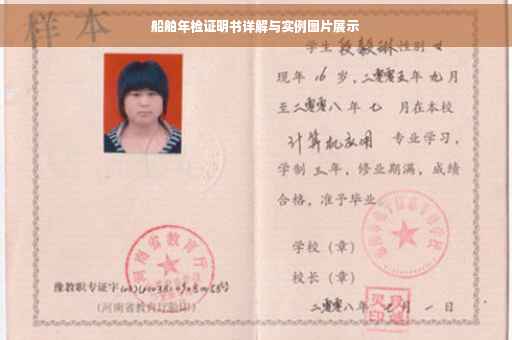 船舶年检证明书详解与实例图片展示
样本
学生段毅琳性别女
现年16岁,二零零五年九月
至二零零八年七月在本校
计算机应用 专业学习,
学制三年,修业期满,成绩
合格,准予毕业。
学校(章)
校长(章)
二零零八年七月一日
河南省教育厅
豫教职专证字
(河南省教育厅验印)